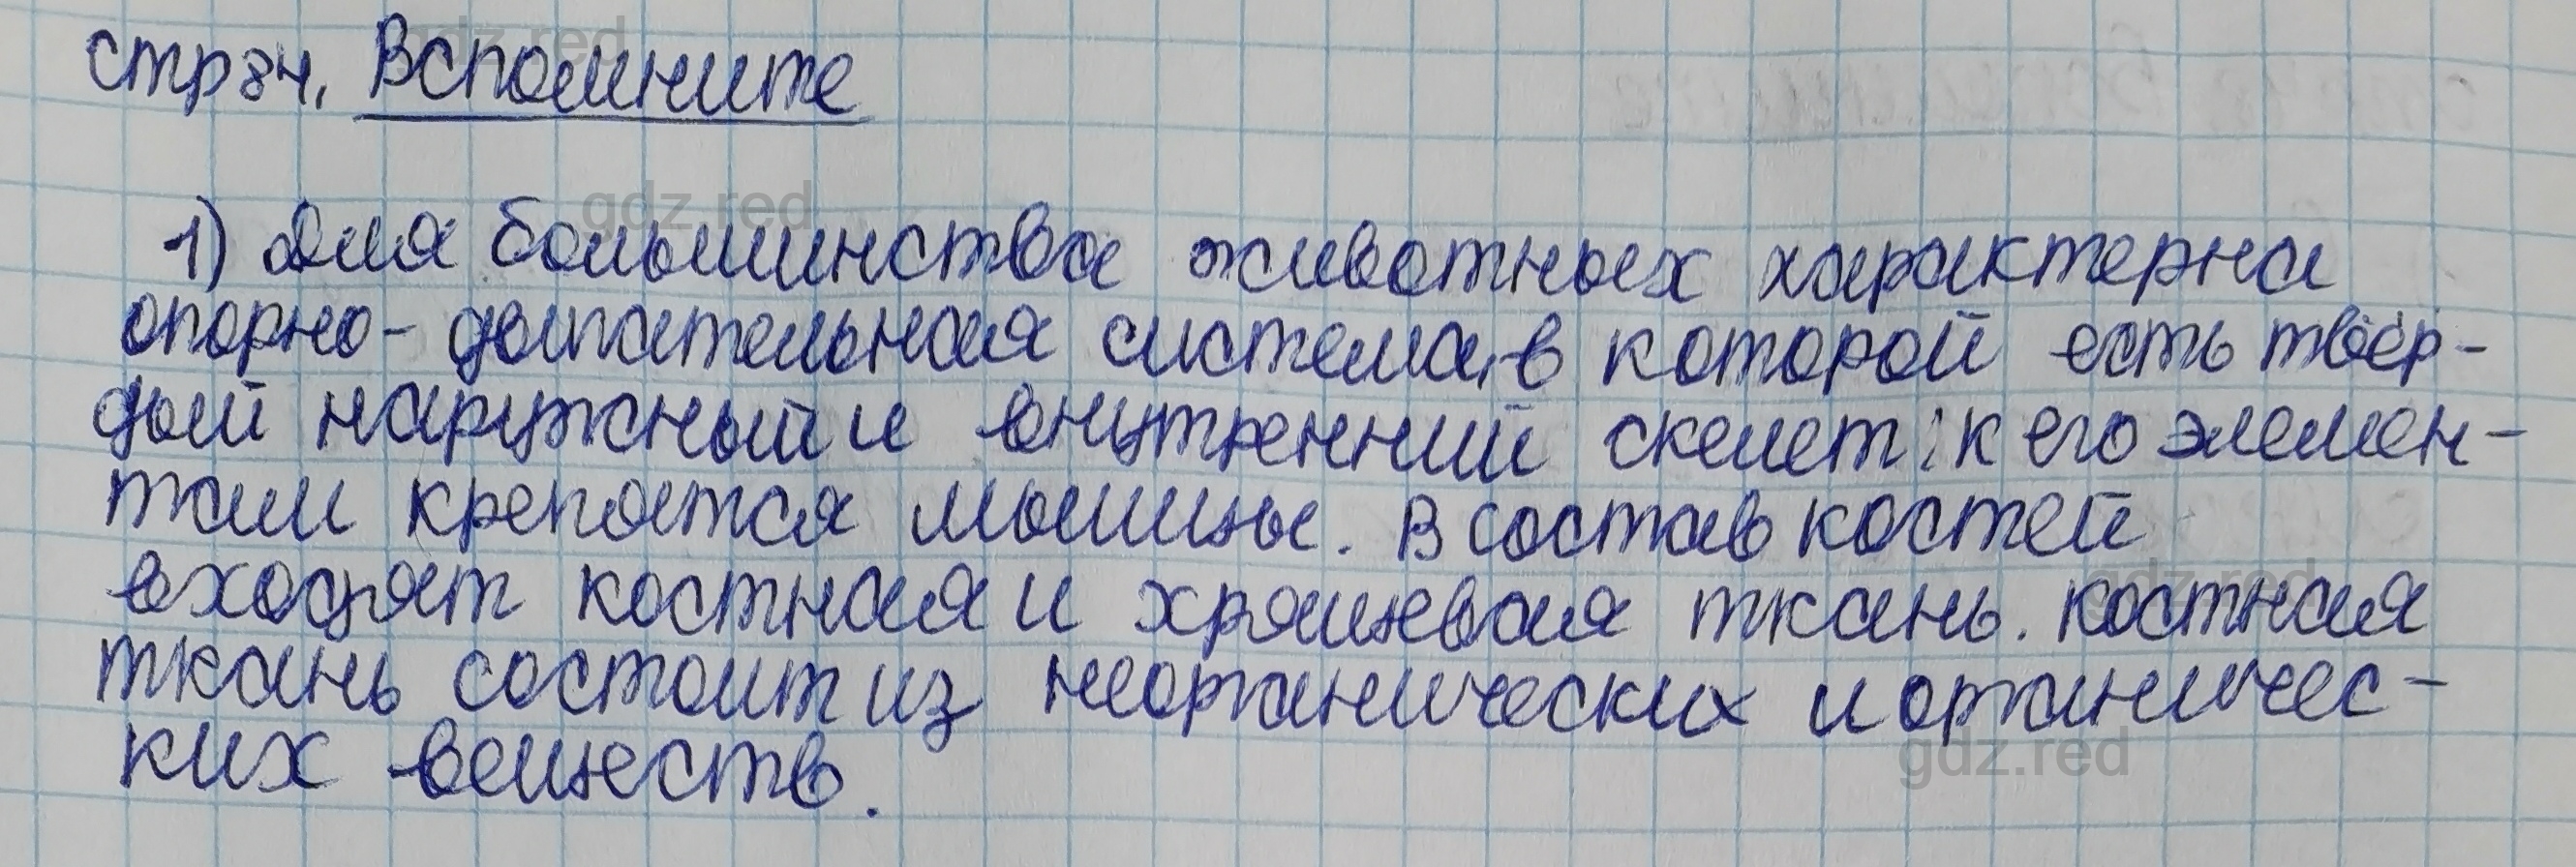 стр 84. Вспомните
1) Для большинства животных характерна
опорно-двигательная система, в которой есть твёр-
дый наружный и внутренний скелет; к его элемен-
там крепятся мышцы. В состав костей
входят костная и хрящевая ткань. Костная
ткань состоит из неорганических и органичес-
ких веществ.
gdz.red
gdz.red
gdz.red
gdz.red